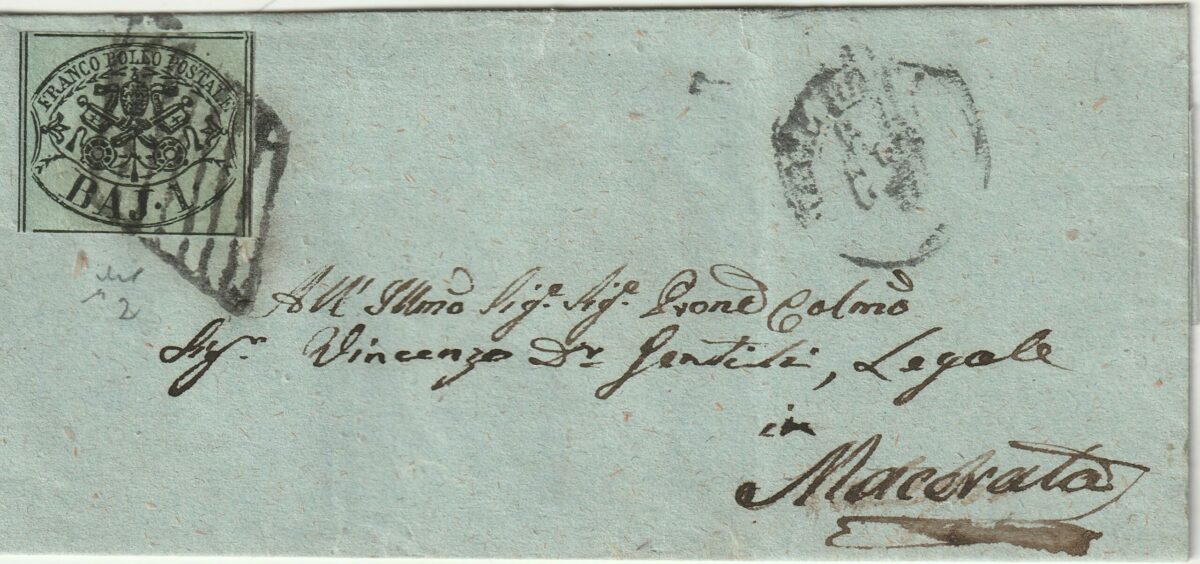 FRANCO BOLLO POSTALE
BAJ. 1
2
All' Illmo Sigr. Sigr. Prone Colmo
Sigr. Vincenzo Dr. Gentili, Legale
in
Macerata